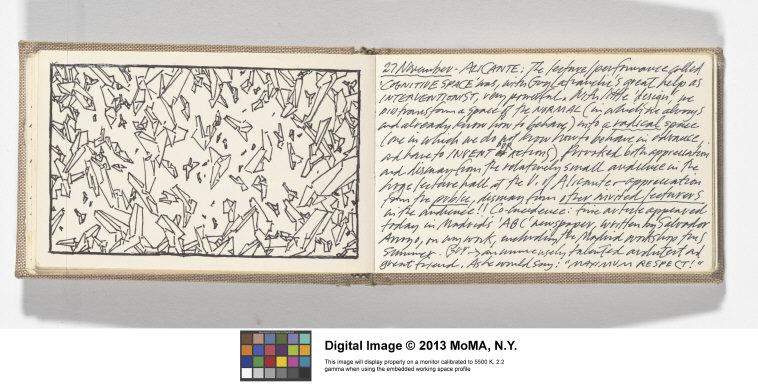 27 November - ALICANTE: The lecture/performance called
"COGNITIVE SPACE" was, with Guy Lafranchi's great help as
INTERVENTIONIST, very powerful. With little design, we
did transform a space of the NORMAL (in which we always
and already know how to behave) into a radical space
(one in which we do not know how to behave in advance,
and have to INVENT OUR actions). Provoked both appreciation
and dismay from the relatively small audience in the
huge lecture hall at the U. of Alicante - appreciation
from the public, dismay from other invited lecturers
in the audience!! Coincidence: fine article appeared
today in Madrid's 'ABC' newspaper, written by Salvador
on my work, including the Madrid workshop this
summer. - an immensely talented architect and
great friend. As he would say: "MAXIMUM RESPECT!"
Digital Image © 2013 MoMA, N.Y.
This image will display properly on a monitor calibrated to 5500 K, 2.2
gamma when using the embedded working space profile